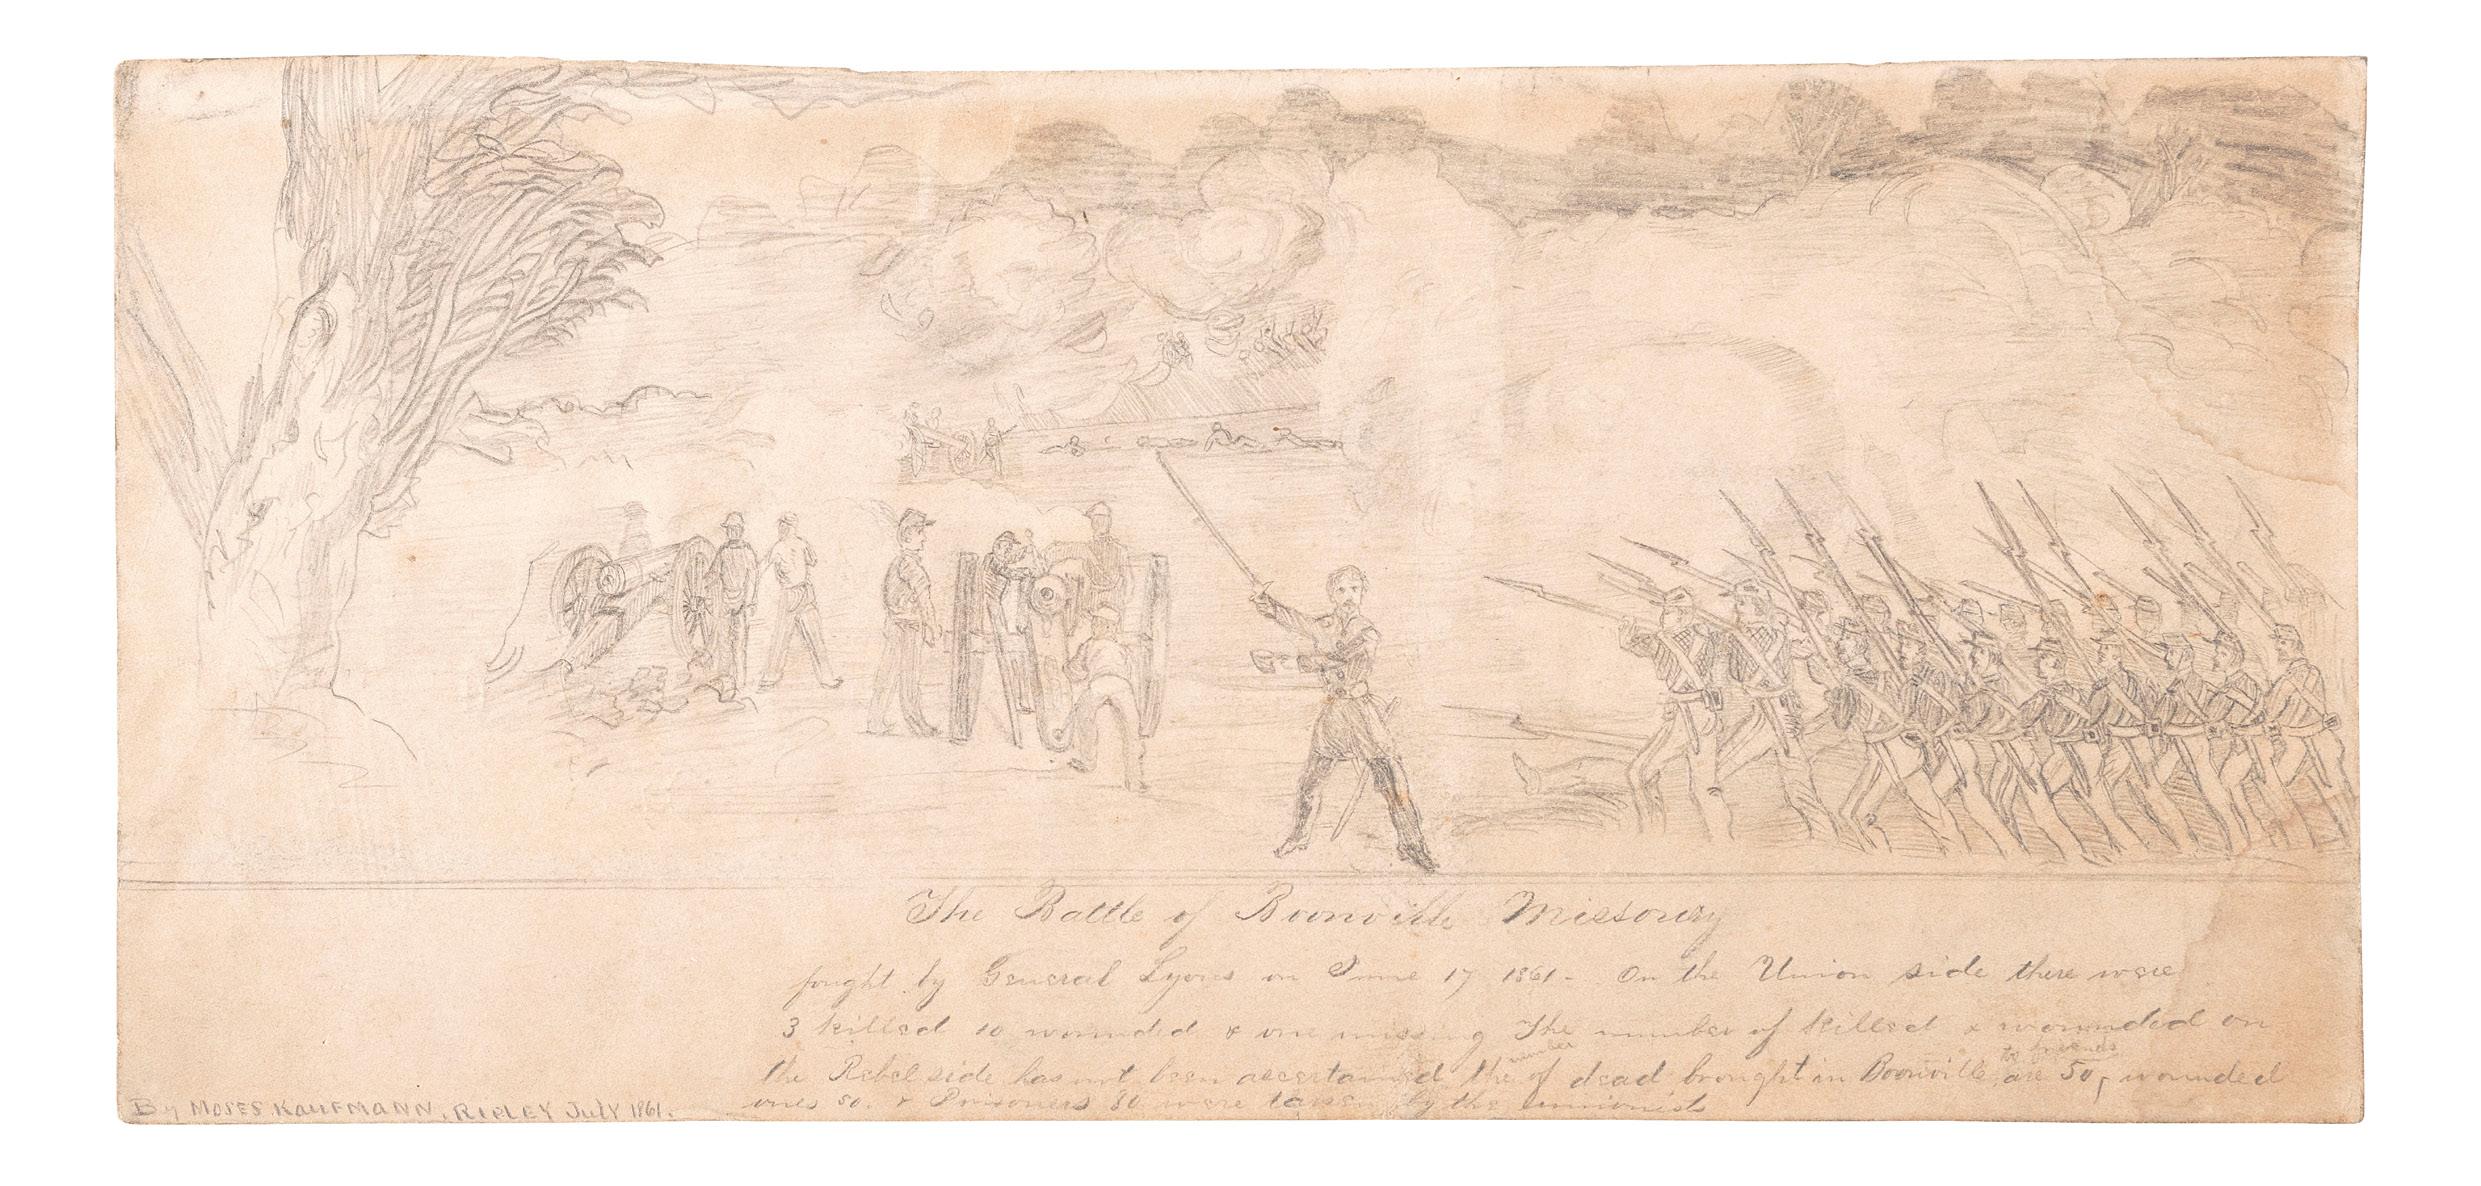 The Battle of Boonville Missoury
fought by General Lyons on June 17 1861 - On the Union side there were
3 killed 10 wounded & one missing The number of killed & wounded on
the Rebel side has not been ascertained the number of dead brought in Boonville to friends are 50, wounded
ones 80. & Prisoners 80 were taken by the unionists
By MOSES KAUFMANN, RIPLEY July 1861.